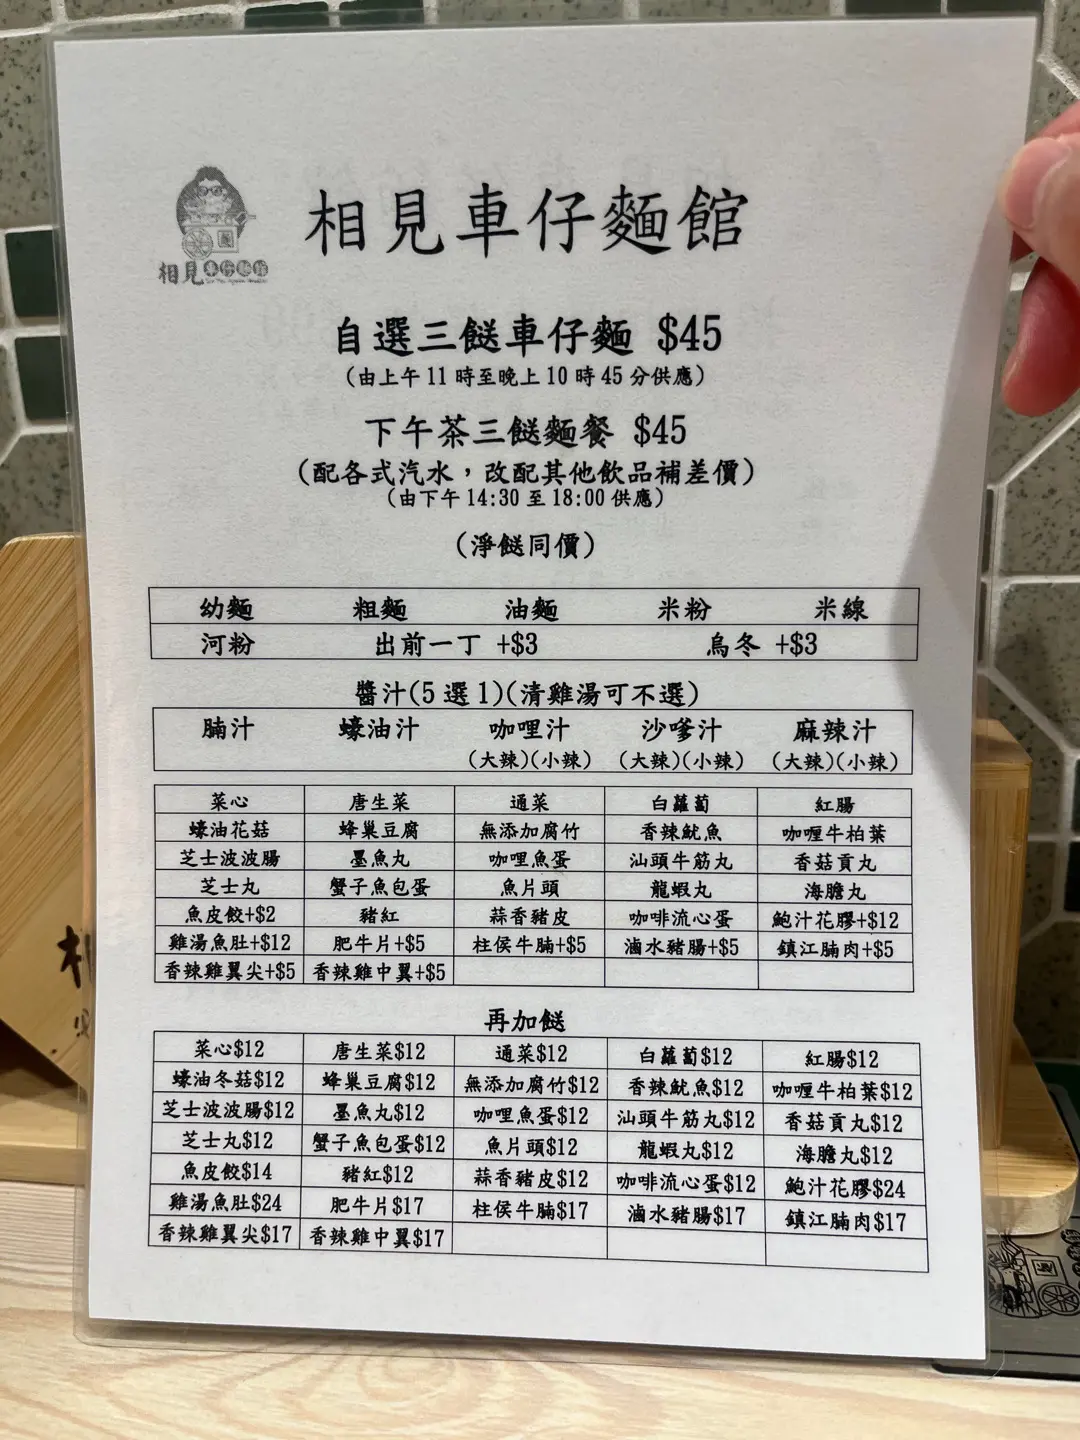 相見
相見車仔麵館
自選三餸車仔麵 $45
(由上午11時至晚上10時45分供應)
下午茶三餸麵餐 $45
(配各式汽水，改配其他飲品補差價)
(由下午14:30至18:00供應)
(淨餸同價)
幼麵 粗麵 油麵 米粉 米線
河粉 出前一丁 +$3 烏冬 +$3
醬汁(5選1)(清雞湯可不選)
腩汁 蠔油汁 咖哩汁 沙嗲汁 麻辣汁
(大辣)(小辣) (大辣)(小辣) (大辣)(小辣)
菜心 唐生菜 通菜 白蘿蔔 紅腸
蠔油花菇 蜂巢豆腐 無添加腐竹 香辣魷魚 咖喱牛柏葉
芝士波波腸 墨魚丸 咖哩魚蛋 汕頭牛筋丸 香菇貢丸
芝士丸 蟹子魚包蛋 魚片頭 龍蝦丸 海膽丸
魚皮餃+$2 豬紅 蒜香豬皮 咖啡流心蛋 鮑汁花膠+$12
雞湯魚肚+$12 肥牛片+$5 柱侯牛腩+$5 滷水豬腸+$5 鎮江腩肉+$5
香辣雞翼尖+$5 香辣雞中翼+$5
再加餸
菜心$12 唐生菜$12 通菜$12 白蘿蔔$12 紅腸$12
蠔油冬菇$12 蜂巢豆腐$12 無添加腐竹$12 香辣魷魚$12 咖喱牛柏葉$12
芝士波波腸$12 墨魚丸$12 咖哩魚蛋$12 汕頭牛筋丸$12 香菇貢丸$12
芝士丸$12 蟹子魚包蛋$12 魚片頭$12 龍蝦丸$12 海膽丸$12
魚皮餃$14 豬紅$12 蒜香豬皮$12 咖啡流心蛋$12 鮑汁花膠$24
雞湯魚肚$24 肥牛片$17 柱侯牛腩$17 滷水豬腸$17 鎮江腩肉$17
香辣雞翼尖$17 香辣雞中翼$17